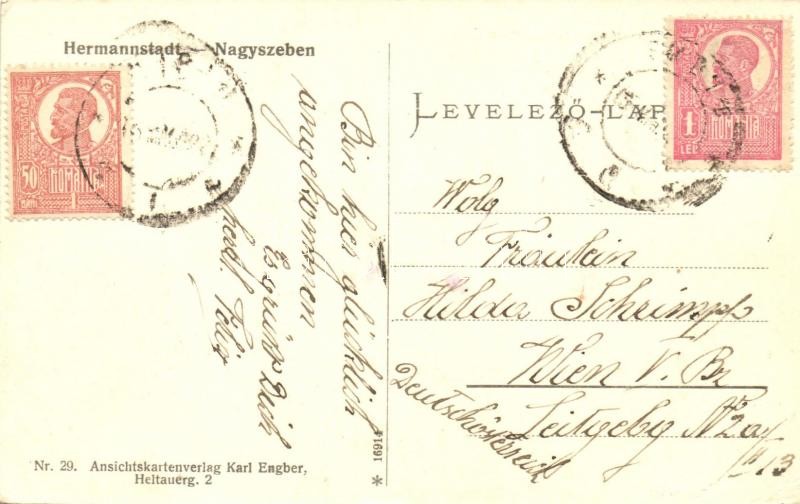 Hermannstadt – Nagyszeben
50
BANI
ROMANIA
1
1
LEU
ROMANIA
LEVELEZŐ-LAP
Bin hier glücklich
angekommen
Es grüßt Dich
Wolg
Fräulein
Hilda Schrimpf
Wien V. Bz
Leitgebg Nr 2a/
III/13
Deutschösterreich
16914
*
Nr. 29. Ansichtskartenverlag Karl Engber,
Heltauerg. 2